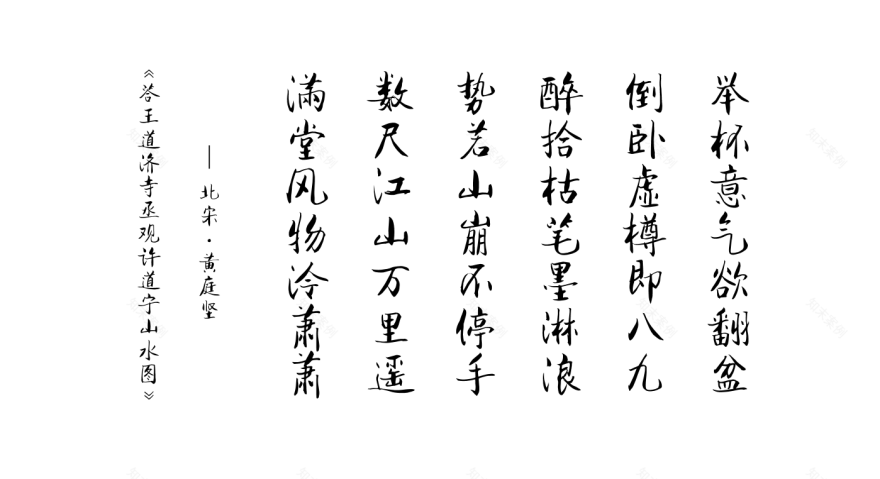 举杯意气欲翻盆
倒卧虚樽即八九
醉拾枯笔墨淋浪
势若山崩不停手
数尺江山万里遥
满堂风物冷萧萧
—北宋·黄庭坚
《答王道济寺丞观许道宁山水图》
知末案例